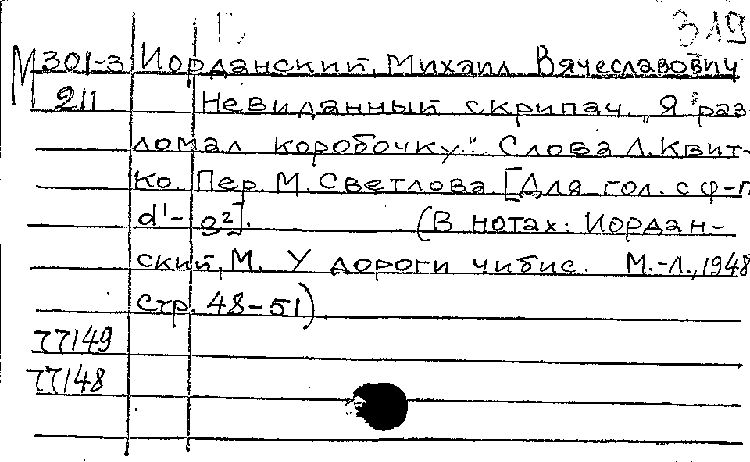 319
М301-3 Иорданский, Михаил Вячеславович
211 Невиданный скрипач. „Я раз-
ломал коробочку." Слова Л. Квит-
ко. Пер. М. Светлова. [Для гол. с ф-п
d¹-g²]. (В нотах: Иордан-
ский, М. У дороги чибис. М.-Л., 1948
стр. 48-51).
77149
77148